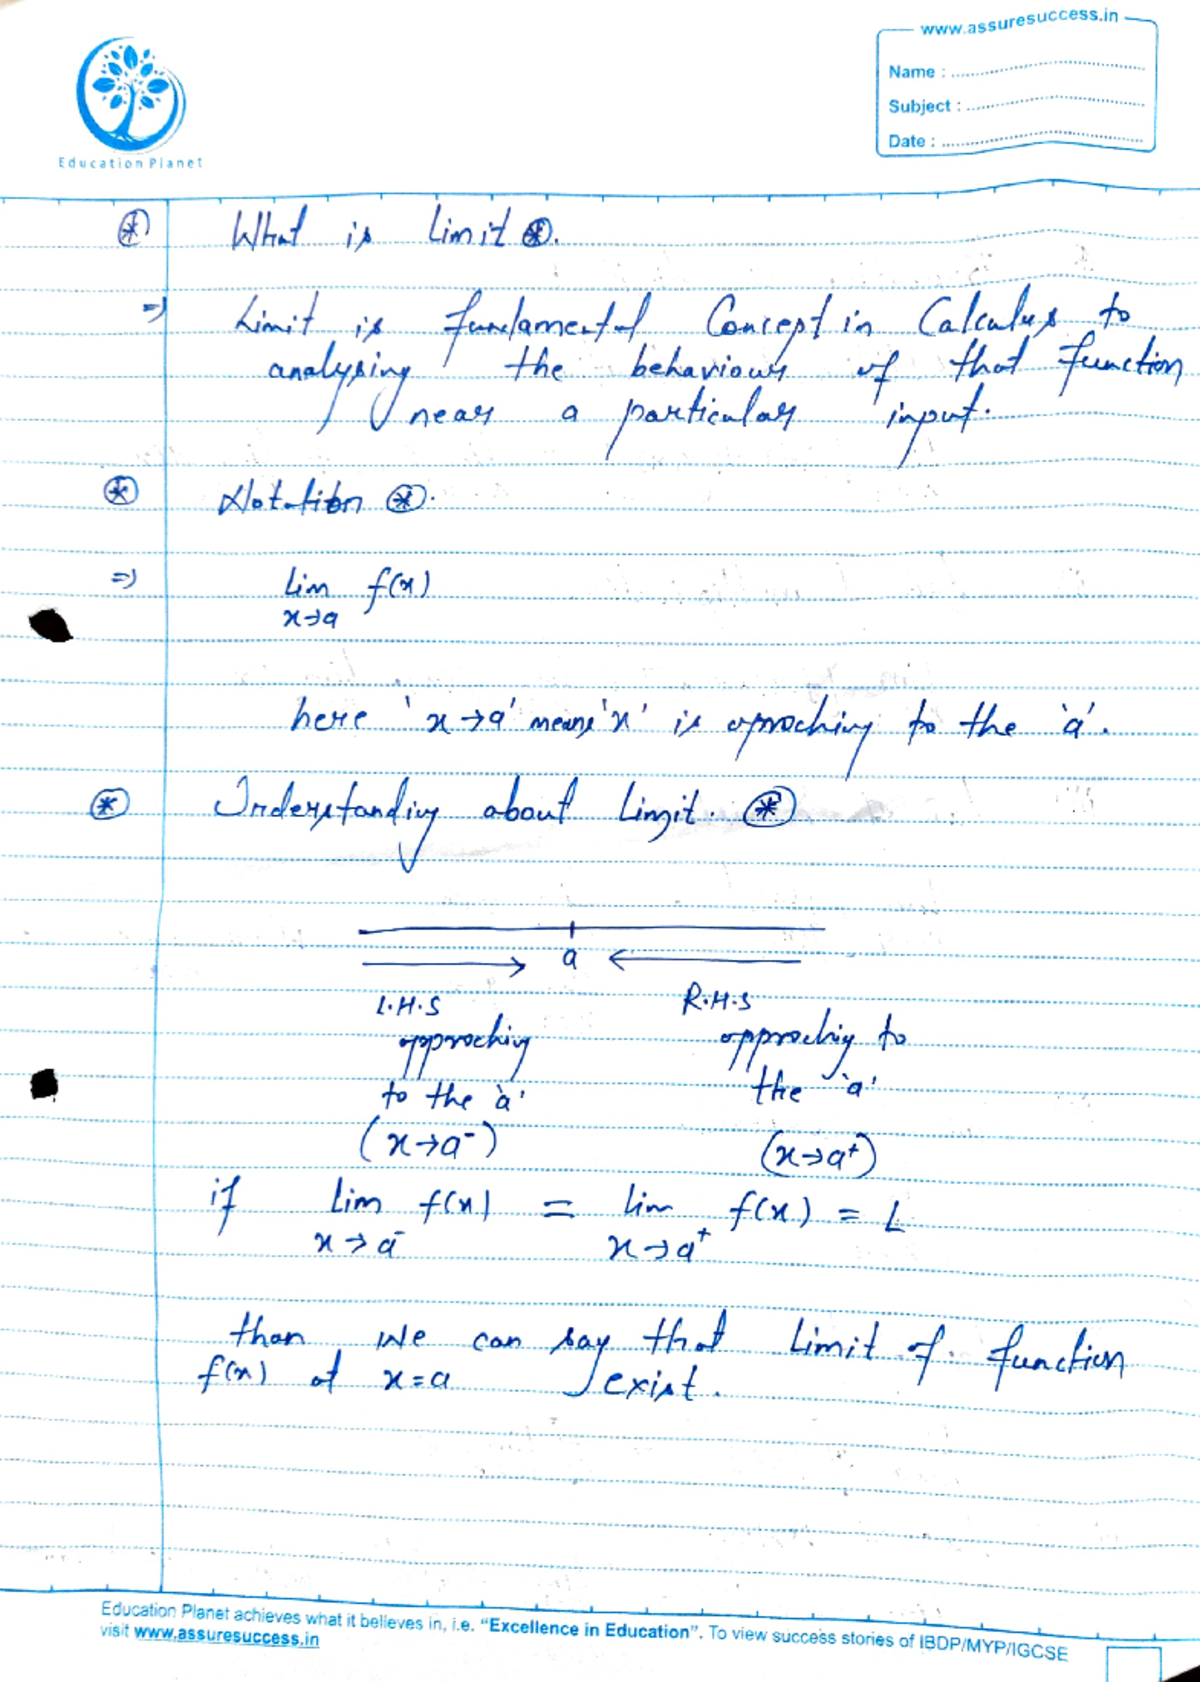 www.assuresuccess.in
Name :
Subject :
Date :
Education Planet
⊛ What is Limit ⊛.
⇒ Limit is fundamental Concept in Calculus to
analysing the behaviour of that function
near a particular input.
⊛ Notation ⊛.
⇒ lim f(x)
x→a
here 'x→a' means 'x' is aproching to the 'a'.
⊛ Understanding about Limit. ⊛
a
L.H.S R.H.S
approching approchig to
to the 'a' the 'a'
(x→a⁻) (x→a⁺)
if lim f(x) = lim f(x) = L
x→a⁻ x→a⁺
than we can say that Limit of function
f(x) at x=a exist.
Education Planet achieves what it believes in, i.e. "Excellence in Education". To view success stories of IBDP/MYP/IGCSE
visit www.assuresuccess.in